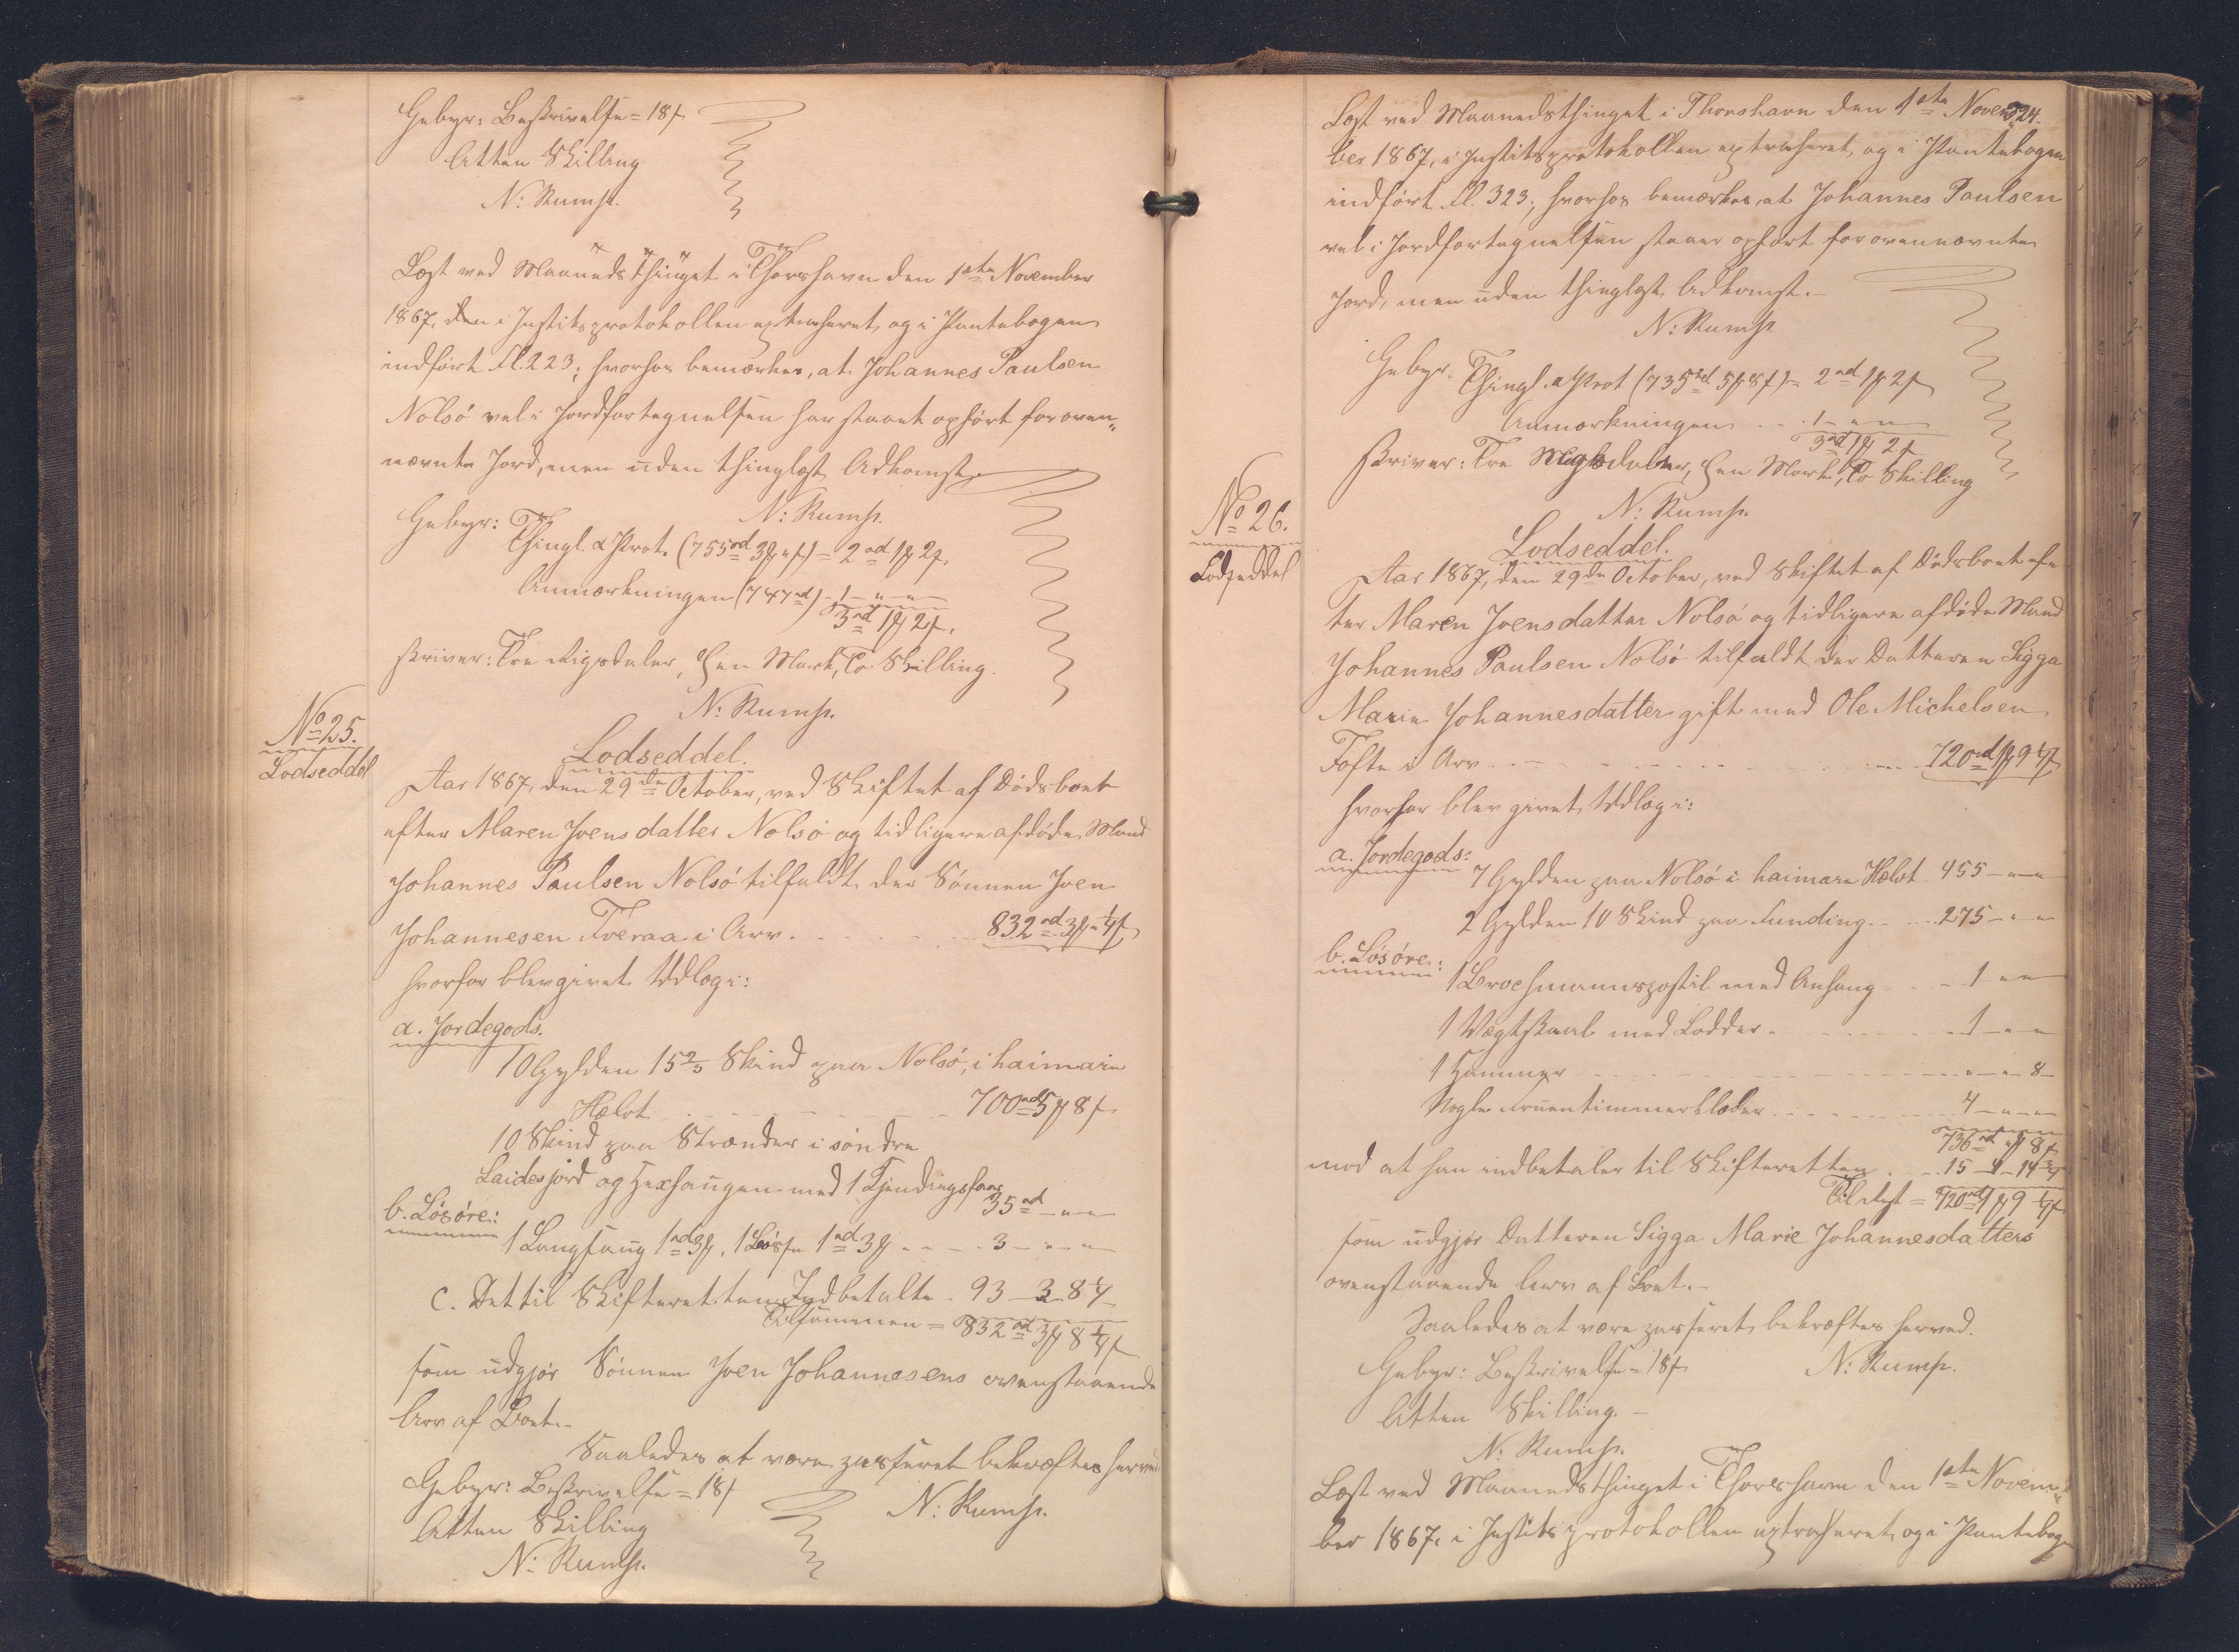 Gebyr: Beskrivelse = 18 ß
Atten Skilling
N: Rump.
Læst ved Maanedsthinget i Thorshavn den 1ste November
1867, den i Justitsprotokollen extraheret og i Pantebogen
indført Fl. 223; hvorhos bemærkes, at Johannes Paulsen
Nolsö vel i Jordfortegnelsen har staaet opført for oven„
nævnte Jord, men uden thinglæst Adkomst.
N: Rump.
Gebyr: Thingl. & Prot. (755rd 3 " ß) = 2rd 1 2 ß
Anmærkningen (747rd) - 1 - " - "
3rd 1 2 ß.
skriver: Tre Rigsdaler, Een Mark, To Skilling.
N: Rump.
No 25.
Lodseddel
Lodseddel.
Aar 1867, den 29de October, ved Skiftet af Dödsboet
efter Maren Joensdatter Nolsö og tidligere afdöde Mand
Johannes Paulsen Nolsö tilfaldt der Sönnen Joen
Johannesen Tveraa i Arv. 832rd 3 " ¼ ß
hvorfor blev givet Udlæg i:
a. Jordegods.
10 Gylden 15 2/5 Skind paa Nolsö, i haimara
Helvt 700rd 5 8 ß
10 Skind paa Strænder i söndre
Laidesjord og med 1
35rd - " - "
b. Lösöre:
1 Langfang 1rd 3, 1 Bösse 1rd 3 3 - " - "
c. Det til Skifteretten Indbetalte - 93 - 3 - 8¼
Tilsammen = 832rd 3 8¼ ß
som udgjör Sönnen Joen Johannesens ovenstaaende
Arv af Boet.-
Saaledes at være passeret bekræftes herved
Gebyr: Beskrivelse = 18 ß
N: Rump.
Atten Skilling
N: Rump.
324
Læst ved Maanedsthinget i Thorshavn den 1ste Novem-
ber 1867, i Justitsprotokollen extraheret og i Pantebogen
indført Fl. 323; hvorhos bemærkes, at Johannes Paulsen
vel i Jordfortegnelsen staaer opført for ovennævnte
Jord, men uden thinglæst Adkomst.-
N: Rump
Gebyr. Thingl. & Prot (735rd 5 8 ß) = 2rd 1 2 ß
Anmærkningen 1 - " - "
3rd 1 2 ß
skriver: Tre Rigsdaler, Een Mark, To Skilling
N: Rump.
No 26.
Lodseddel
Lodseddel.
Aar 1867, den 29de October, ved Skiftet af Dödsboet ef-
ter Maren Joensdatter Nolsö og tidligere afdöde Mand
Johannes Paulsen Nolsö tilfaldt der Datteren Sigga
Marie Johannesdatter gift med Ole Michelsen
Tofte i Arv 720rd 1 9¼ ß
hvorfor blev givet Udlæg i:
a. Jordegods:
7 Gylden paa Nolsö i haimara Helvt 455 - " - "
2 Gylden 10 Skind paa Funding 275 - " - "
b. Lösöre:
1 Brochmannspostil med Anhang 1 " "
1 Vægtskaal med Lodder 1 - " - "
1 Hammer " - " - 8 -
Nogle Fruentimmerklæder 4 - " - "
736rd " 8 ß
mod at han indbetaler til Skifteretten 15 - 4 - 14¾
Til Rest = 720rd 1 9¼ ß
som udgjör Datteren Sigga Marie Johannesdatters
ovenstaaende Arv af Boet.-
Saaledes at være passeret bekræftes herved.
Gebyr: Beskrivelse = 18 ß
N: Rump.
Atten Skilling. -
N: Rump.
Læst ved Maanedsthinget i Thorshavn den 1ste Novem„
ber 1867, i Justitsprotokollen extraheret og i Pantebog